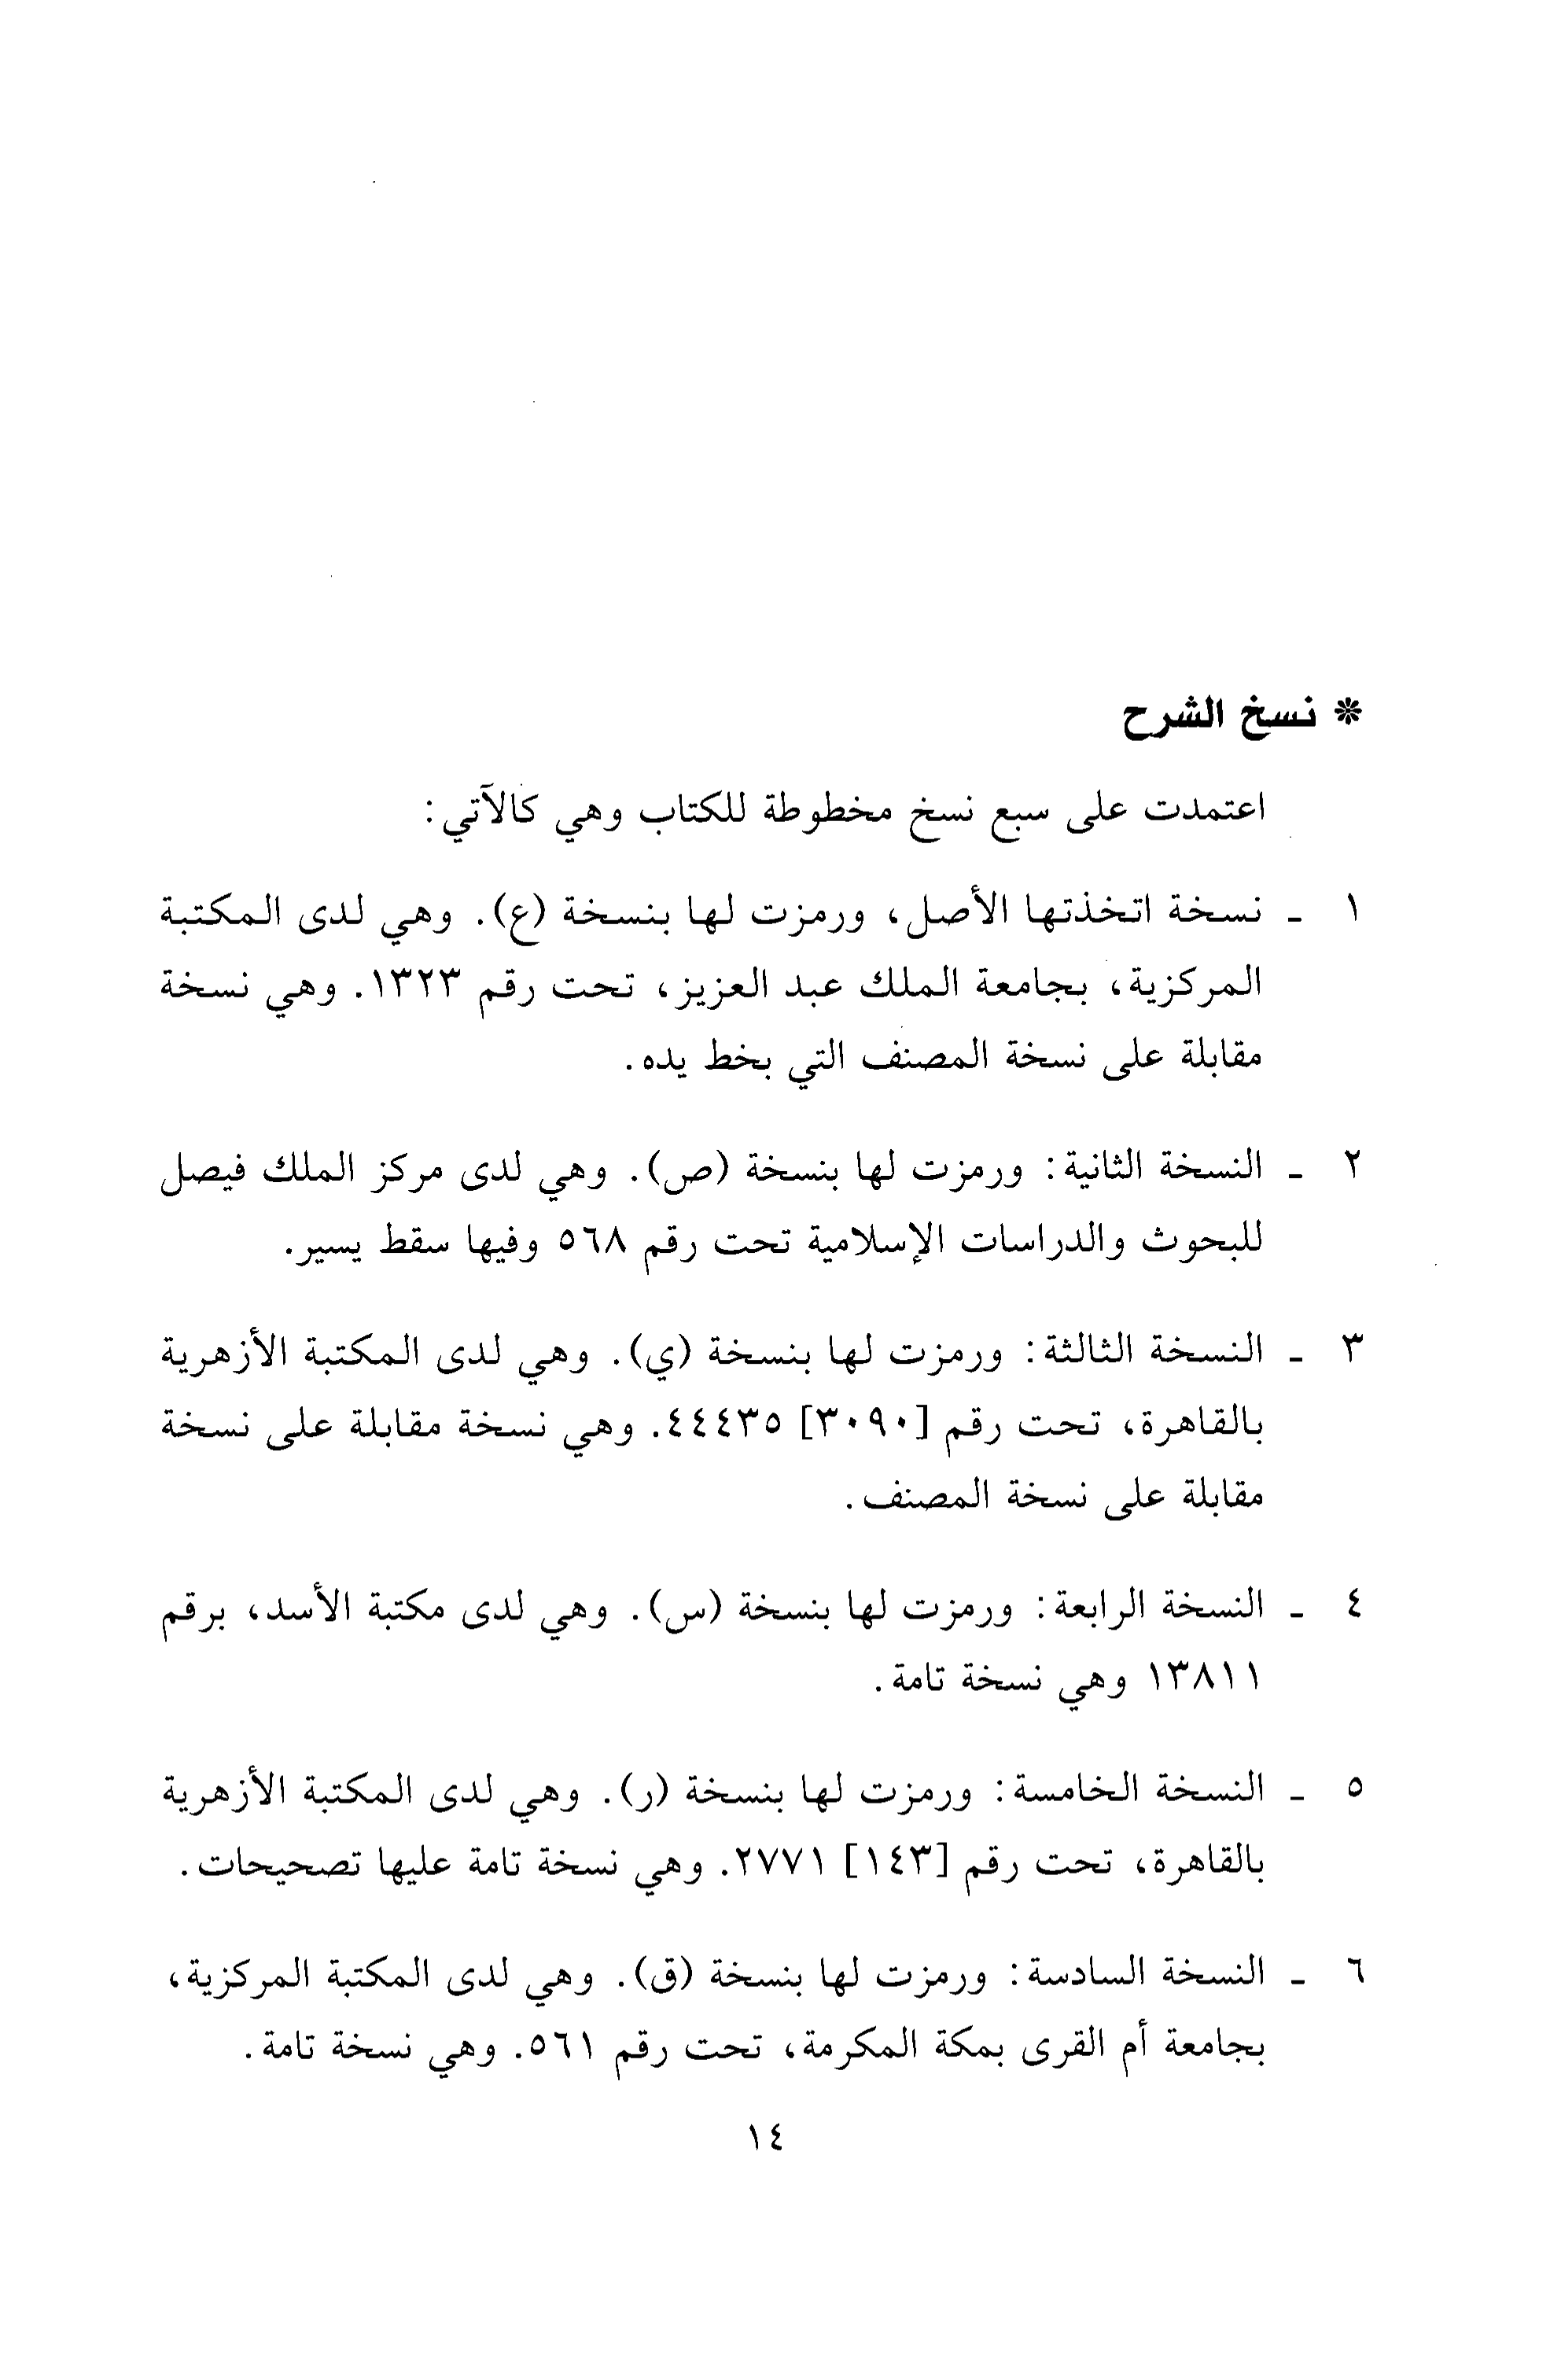 * نسخ الشرح
اعتمدت على سبع نسخ مخطوطة للكتاب وهي كالآتي:
١ - نسخة اتخذتها الأصل، ورمزت لها بنسخة (ع). وهي لدى المكتبة
المركزية، بجامعة الملك عبد العزيز، تحت رقم ١٣٢٣. وهي نسخة
مقابلة على نسخة المصنف التي بخط يده.
٢ - النسخة الثانية: ورمزت لها بنسخة (ص). وهي لدى مركز الملك فيصل
للبحوث والدراسات الإسلامية تحت رقم ٥٦٨ وفيها سقط يسير.
٣ - النسخة الثالثة: ورمزت لها بنسخة (ي). وهي لدى المكتبة الأزهرية
بالقاهرة، تحت رقم [٣٠٩٠] ٤٤٤٣٥. وهي نسخة مقابلة على نسخة
مقابلة على نسخة المصنف.
٤ - النسخة الرابعة: ورمزت لها بنسخة (س). وهي لدى مكتبة الأسد، برقم
١٣٨١١ وهي نسخة تامة.
٥ - النسخة الخامسة: ورمزت لها بنسخة (ر). وهي لدى المكتبة الأزهرية
بالقاهرة، تحت رقم [١٤٣] ٢٧٧١. وهي نسخة تامة عليها تصحيحات.
٦ - النسخة السادسة: ورمزت لها بنسخة (ق). وهي لدى المكتبة المركزية،
بجامعة أم القرى بمكة المكرمة، تحت رقم ٥٦١. وهي نسخة تامة.
١٤